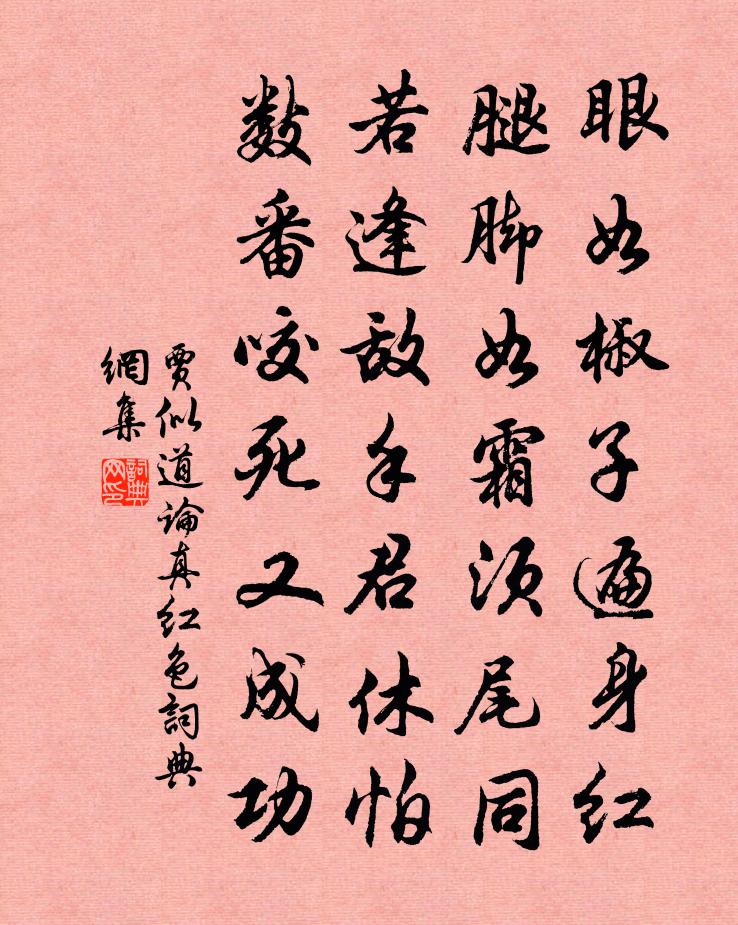 眼如椒子遍身红
腿脚如霜须尾同
若逢敌手君休怕
数番咬死又成功
贾似道论真红色詞典
網集
詞典
网印